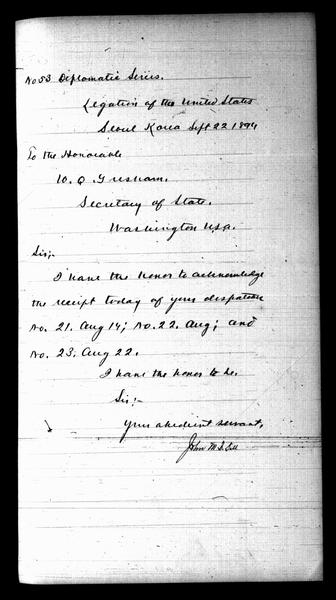 No 53 Diplomatic Series.
Legation of the United States
Seoul Korea Sept 22 1894
To the Honorable
W. Q. Gresham.
Secretary of State.
Washington U.S.A.
Sir;-
I have the honor to acknowledge
the receipt today of your despatches
No. 21. Aug 14; No. 22. Aug; and
No. 23. Aug 22.
I have the honor to be.
Sir:-
Your obedient servant,
John M. B. Sill